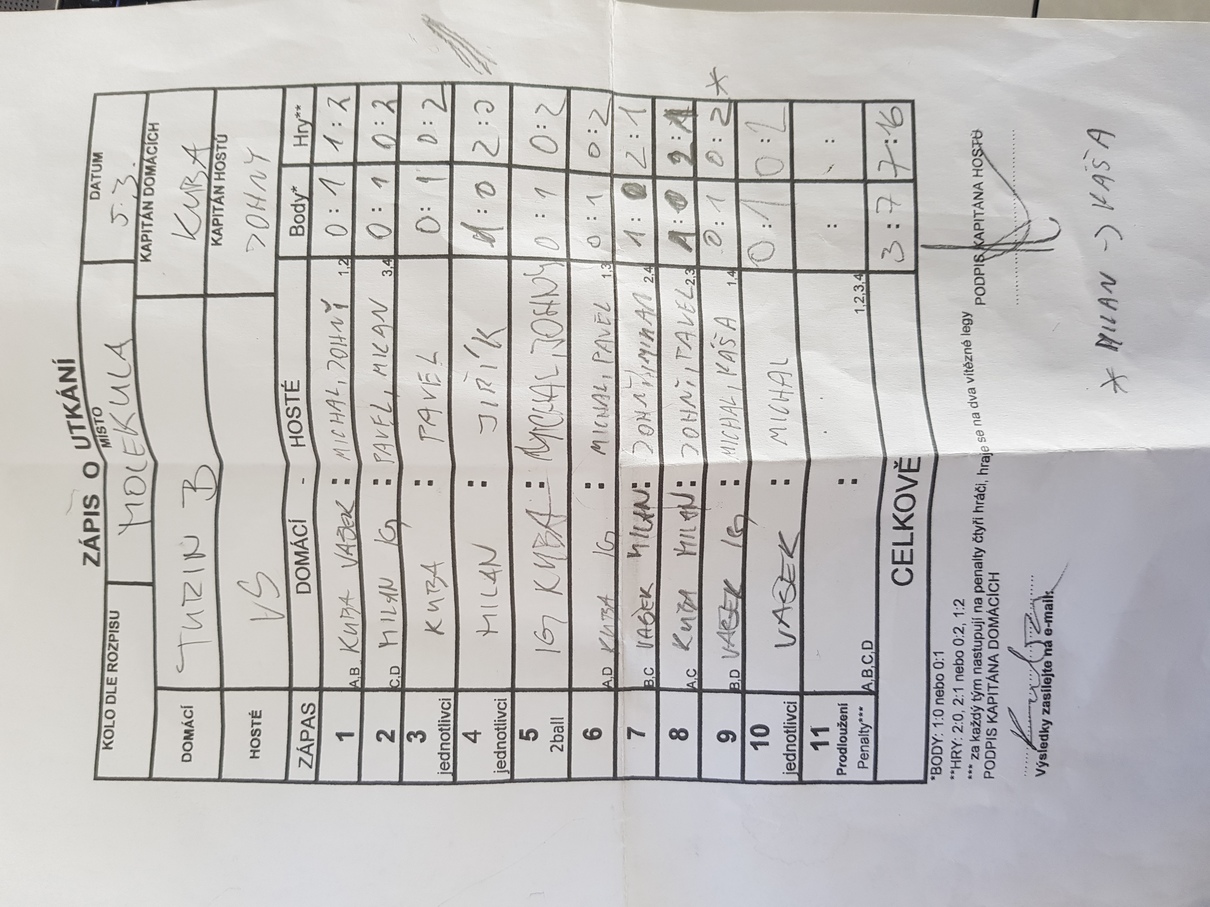 ZÁPIS O UTKÁNÍ
KOLO DLE ROZPISU MÍSTO MOLEKULA DATUM 5.3.
DOMÁCÍ TURIN B KAPITÁN DOMÁCÍCH KUBA
HOSTÉ VS KAPITÁN HOSTŮ JOHNY
ZÁPAS DOMÁCÍ - HOSTÉ Body* Hry**
1 A,B KUBA VAŠEK : MICHAL, JOHNY 1,2 0:1 1:2
2 C,D MILAN : PAVEL, MILAN 3,4 0:1 0:2
3 jednotlivci KUBA : PAVEL 0:1 0:2
4 jednotlivci MILAN : JIŘÍK 1:0 2:0
5 2ball KUBA : MICHAL, JOHNY 0:1 0:2
6 A,D KUBA : MICHAL, PAVEL 1,3 0:1 0:2
7 B,C VAŠEK MILAN : JOHNY, MILAN 2,4 1:0 2:1
8 A,C KUBA MILAN : JOHNY, PAVEL 2,3 1:0 2:1
9 B,D VAŠEK : MICHAL, KÁŠA 1,4 0:1 0:2 *
10 jednotlivci VAŠEK : MICHAL 0:1 0:2
11 Prodloužení Penalty*** A,B,C,D : 1,2,3,4 : :
CELKOVĚ 3:7 7:16
*BODY: 1:0 nebo 0:1
**HRY: 2:0, 2:1 nebo 0:2, 1:2
*** za každý tým nastupují na penalty čtyři hráči, hraje se na dva vítězné legy
PODPIS KAPITÁNA DOMÁCÍCH PODPIS KAPITÁNA HOSTŮ
Výsledky zasílejte na e-mail:
* MILAN -> KÁŠA